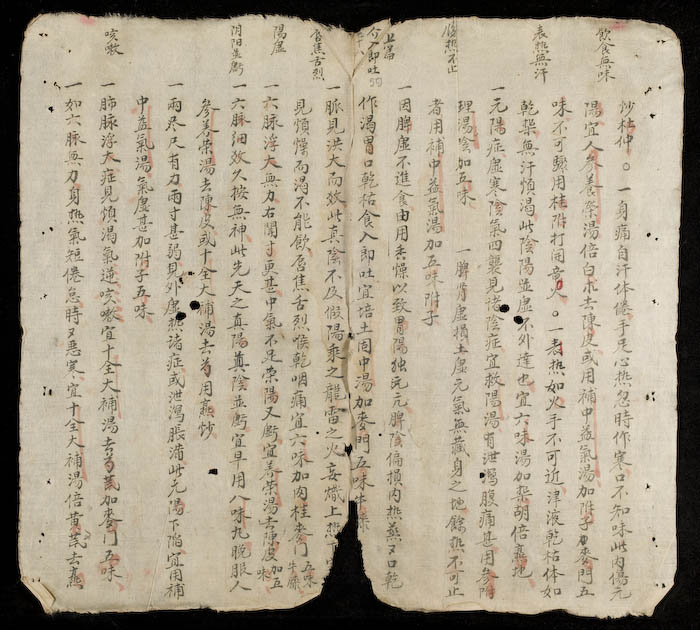 飲食無味
表熱無汗
煩熱不止
上篇
食入即吐
唇焦舌烈
陽虛
阴阳並虧
咳嗽
炒杜仲。一身痛自汗体倦手足心热忽時作寒口不知味此内傷元
陽宜人參養榮湯倍白朮去陳皮或用補中益氣湯加附子加麥門五
味不可驟用桂附打開竜火。一表热如火手不可近津液乾枯体如
乾柴無汗煩渴此陰陽並虛不外達也宜六味湯加柴胡倍熟地
一元陽症虛寒陰氣四襲見諸陰症宜救陽湯有泄瀉腹痛甚用參附
理湯陰加五味
一脾腎虛損土虛元氣無藏身之地餙热不可止
者用補中益氣湯加五味附子
一因脾虛不進食由用柔燥以致胃陽独亢元脾陰偏損内热蒸又口乾
作渴胃口乾枯食入即吐宜培土固中湯加麥門五味牛膝
一脈見洪大而数此真陰不足假陽乘之龍雷之火妄熾上热下
見煩燥而渴不能飲唇焦舌烈喉乾咽痛宜六味加肉桂麥門五味牛膝
一六脉浮大無力右関寸更甚中氣不足榮陽又虧宜養榮湯去陳皮加五味
一六脉細数久按無神此先天之真陽真陰並虧宜早用八味丸晚服人
參養榮湯去陳皮或十全大補湯去芎用熟炒
一兩尽尺有力兩寸甚弱見外虛热诸症或泄瀉脹滿此元陽下陷宜用補
中益氣湯氣虛甚加附子五味
一肺脉浮大症見煩渴氣逆咳嗽宜十全大補湯去芎芪加麥門五味
一如六脉無力身热氣短倦怠時又惡寒宜十全大補湯倍黄芪去熟